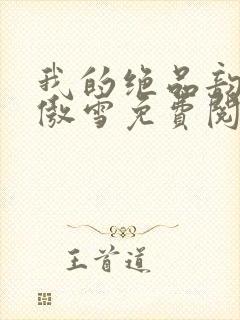 我的绝品
傲雪免費閱
王首道